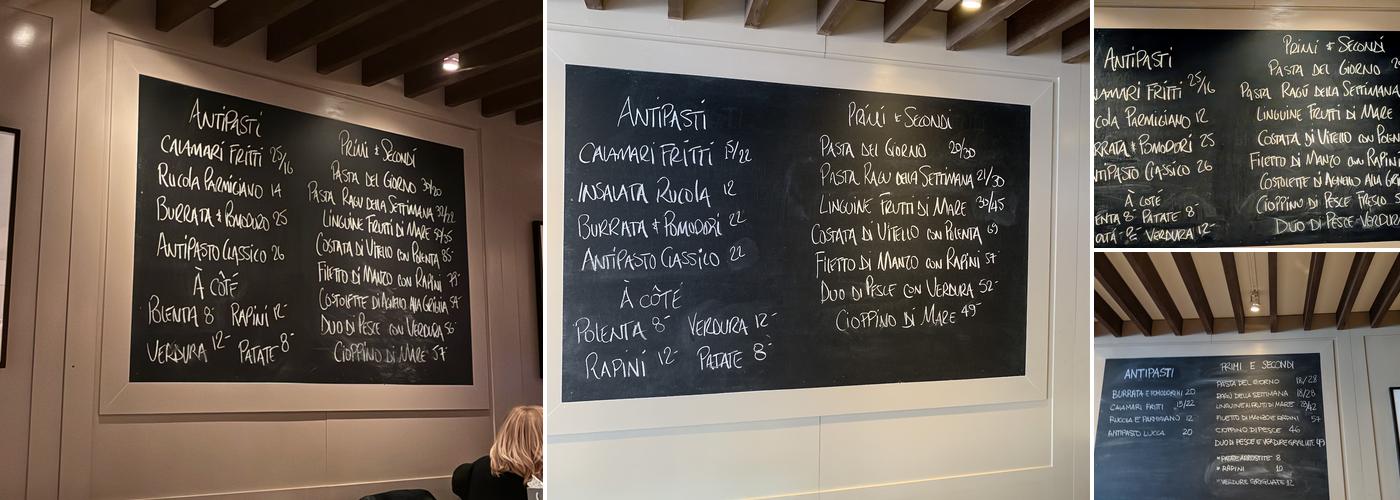 ANTIPASTI
CALAMARI FRITTI 25/16
RUCOLA PARMIGIANO 14
BURRATA & POMODORO 25
ANTIPASTO CLASSICO 26
À CÔTÉ
POLENTA 8- RAPINI 12-
VERDURA 12- PATATE 8-
PRIMI & SECONDI
PASTA DEL GIORNO 30/20
PASTA RAGÙ DELLA SETTIMANA
LINGUINE FRUTTI DI MARE
COSTATA DI VITELLO CON POLENTA
FILETTO DI MANZO CON RAPINI
COSTOLETTE DI AGNELLO ALLA GRIGLIA
DUO DI PESCE CON VERDURA
CIOPPINO DI MARE 57-
ANTIPASTI
CALAMARI FRITTI 15/22
INSALATA RUCOLA 12
BURRATA & POMODORI 22
ANTIPASTO CLASSICO 22
À CÔTÉ
POLENTA 8- VERDURA 12-
RAPINI 12- PATATE 8-
PRIMI & SECONDI
PASTA DEL GIORNO 20/30
PASTA RAGU DELLA SETTIMANA 21/30
LINGUINE FRUTTI DI MARE 30/45
COSTATA DI VITELLO CON POLENTA 69
FILETTO DI MANZO CON RAPINI 57
DUO DI PESCE CON VERDURA 52-
CIOPPINO DI MARE 49-
ANTIPASTI
LAMARI FRITTI 25/16
COLA PARMIGIANO 12
RRATA & POMODORI 25
TIPASTO CLASSICO 26
À COTÉ
ENTA 8- PATATE 8-
VERDURA 12-
PRIMI & SECONDI
PASTA DEL GIORNO
PASTA RAGÙ DELLA SETTIMANA
LINGUINE FRUTTI DI MARE
COSTATA DI VITELLO CON POLEN
FILETTO DI MANZO CON RAPIN
COSTOLETTE DI AGNELLO ALLA GR
CIOPPINO DI PESCE FRESCO
DUO DI PESCE VERDUR
ANTIPASTI
BURRATA E POMODORINI 20
CALAMARI FRITTI 15/22
RUCOLA E PARMIGIANO 12
ANTIPASTO LUCCA 20
PRIMI E SECONDI
PASTA DEL GIORNO 18/28
RAGÙ DELLA SETTIMANA 18/28
LINGUINE AI FRUTTI DI MARE 28/42
FILETTO DI MANZO E RAPINI 57
CIOPPINO DI PESCE 46
DUO DI PESCE E VERDURE GRIGLIATE 49
* PATATE ARROSTITE 8
* RAPINI 10
* VERDURE GRIGLIATE 12